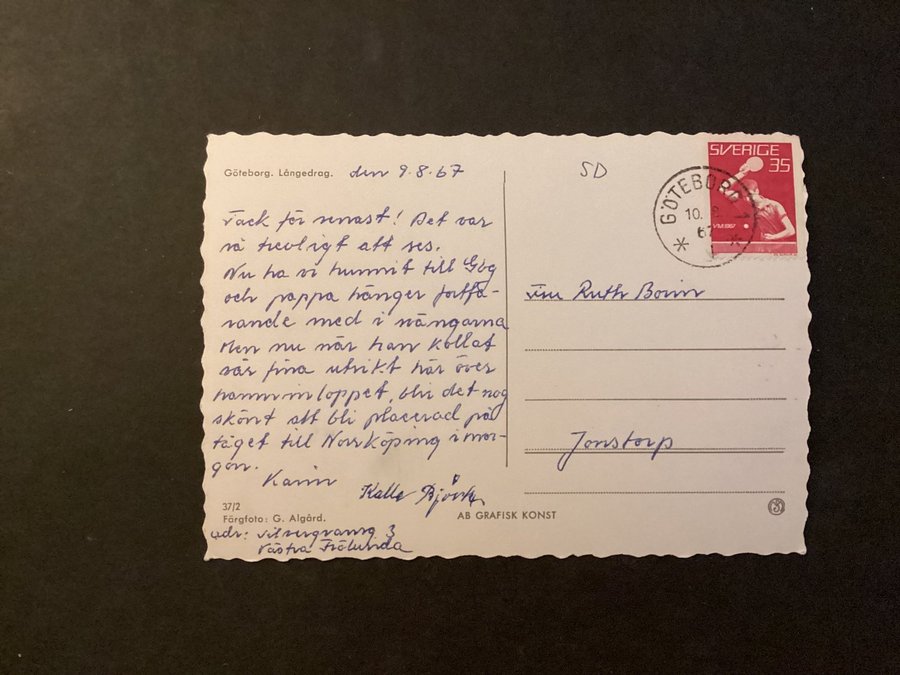 Göteborg. Långedrag. den 9.8.67
SD
SVERIGE
35
GÖTEBORG 1
10.
67
VM 1967
Tack för senast! Det var
så trevligt att ses.
Nu ha vi hunnit till Gbg
och pappa hänger fortfa-
rande med i svängarna
Men nu när han kollat
vår fina utsikt här över
hamninloppet, blir det nog
skönt att bli placerad på
tåget till Norrköping i mor-
gon.
Karin
Kalle Björk
Fru Ruth
Jonstorp
37/2
Färgfoto: G. Algård.
AB GRAFISK KONST
adr: 3
Västra Frölunda